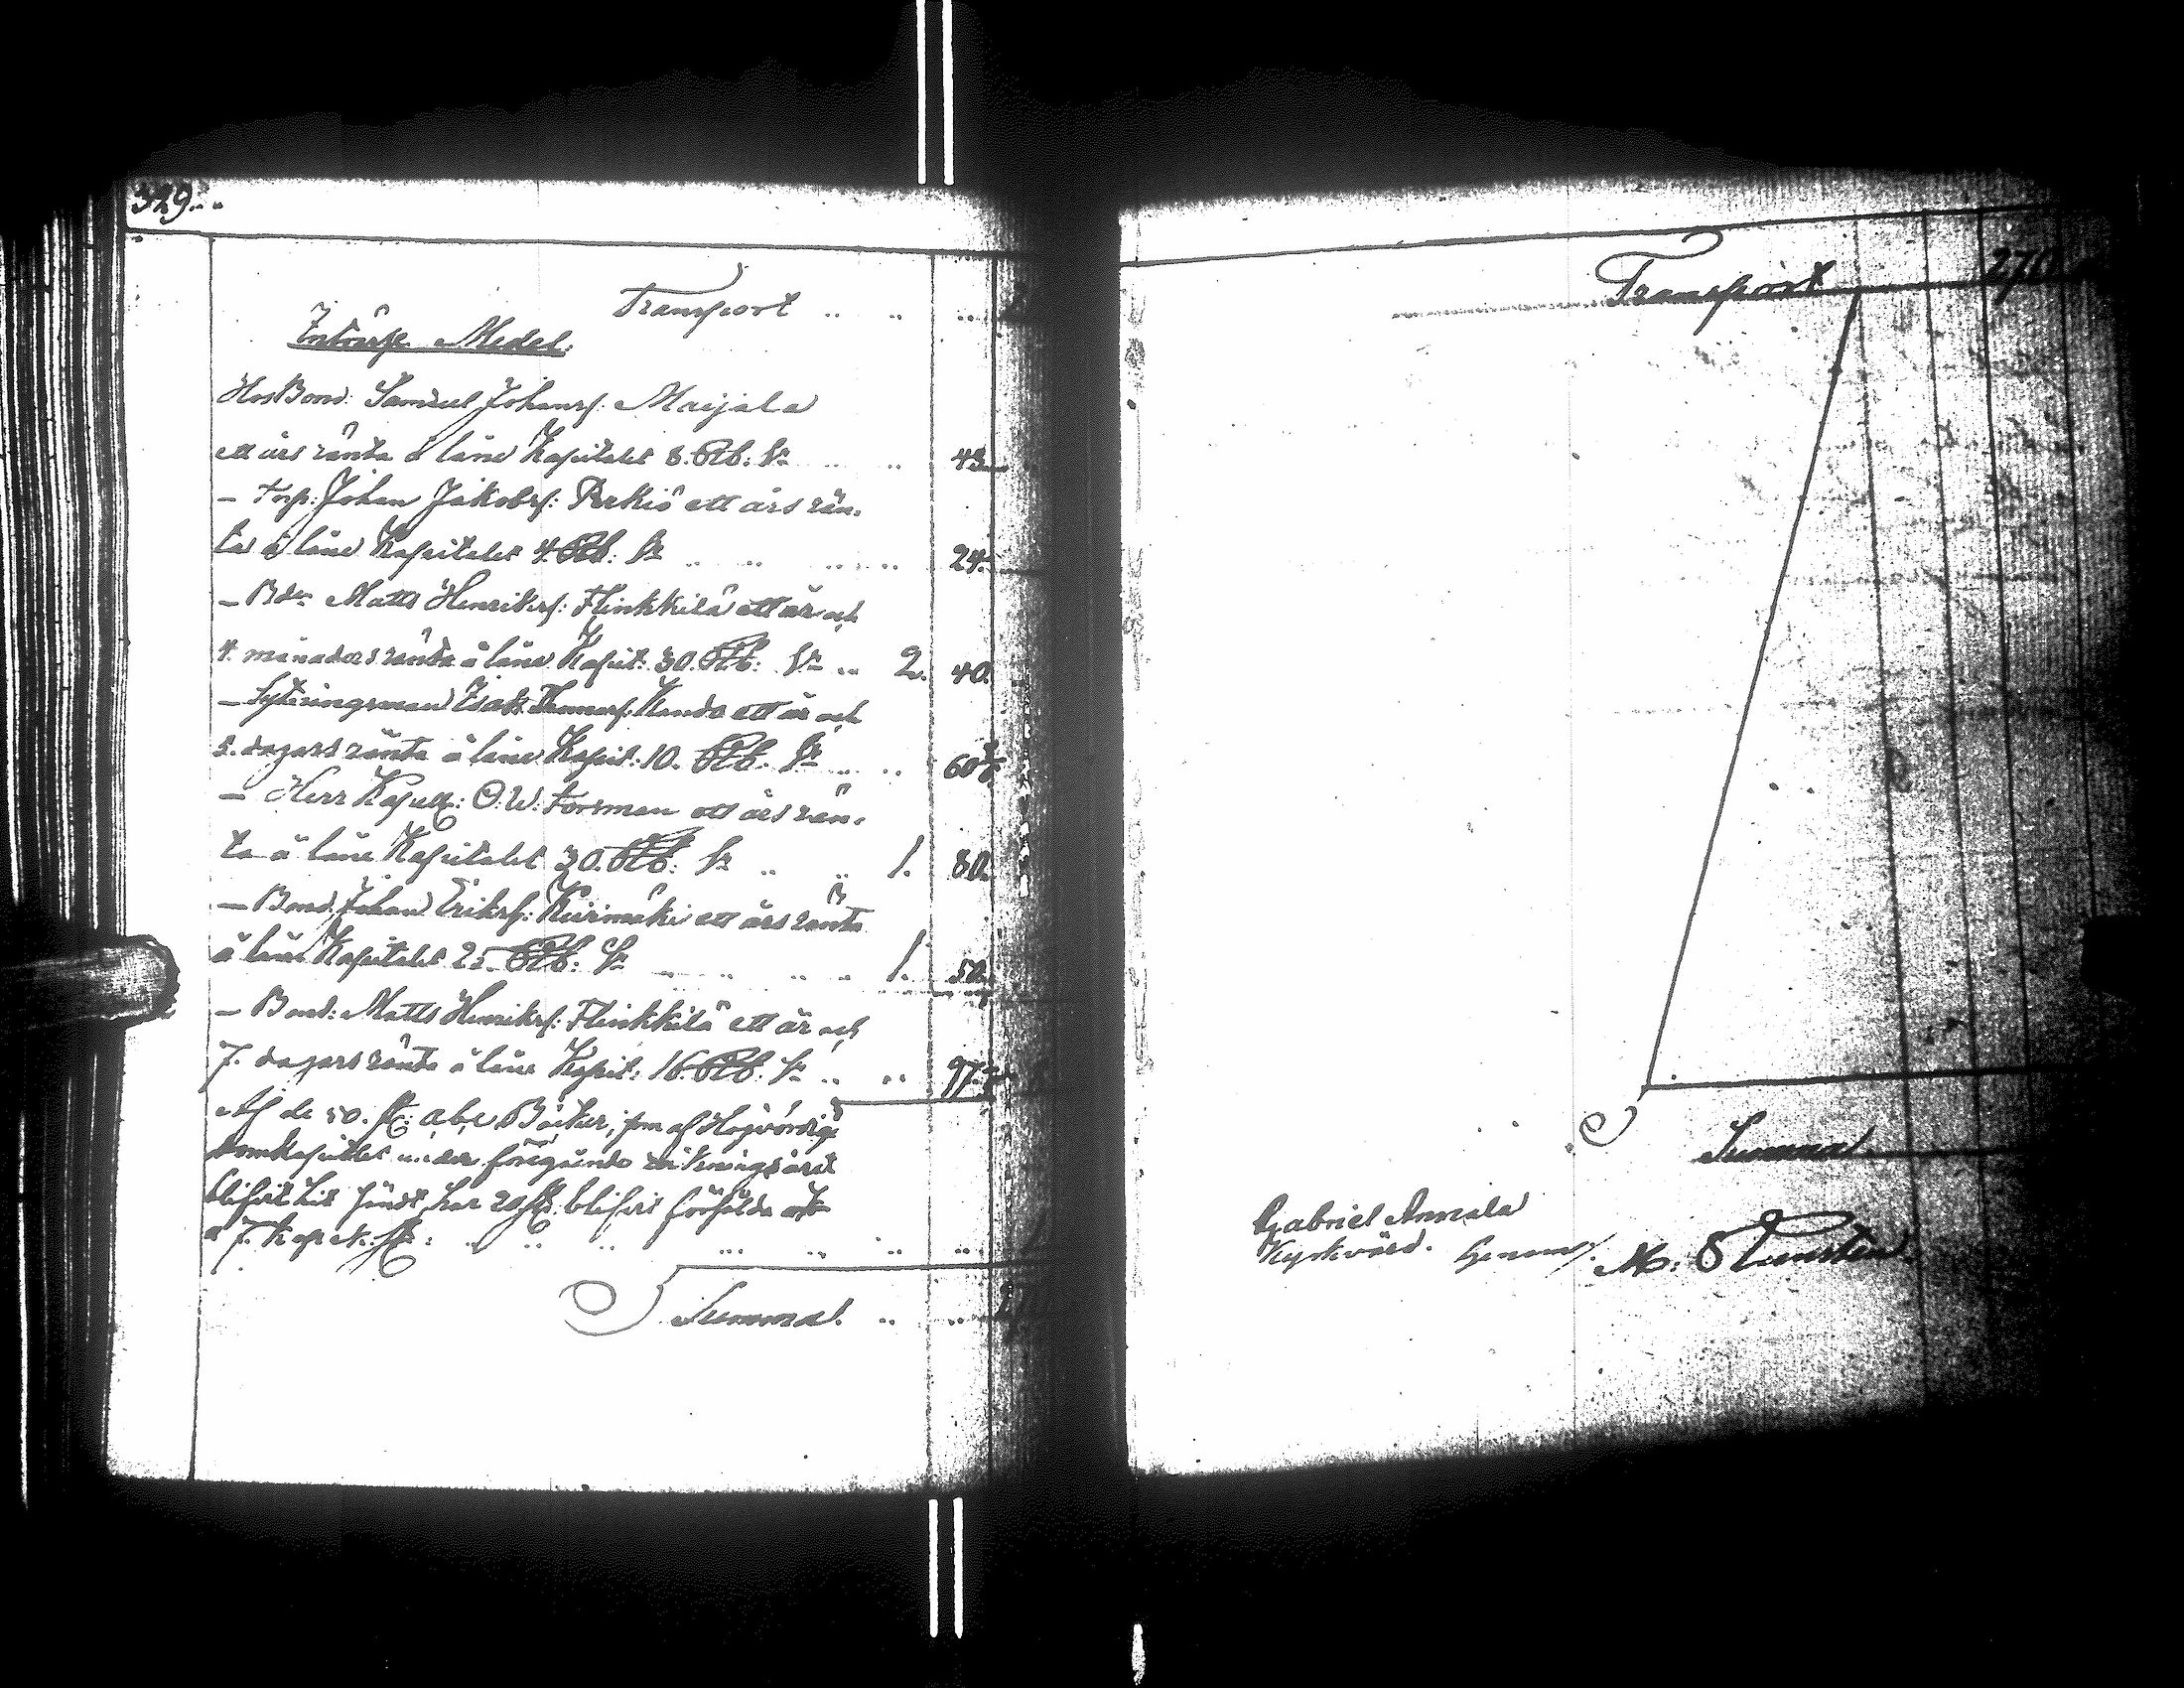 329...
Transport .. .. ..
Intresse Medel:
Hos Bond: Samuel Johansf: Maijala
ett års ränta å låne Kapitalet 8. Rub: Sr .. .. 48.
- Torp: Johan Jakobsf: Perkiö ett års rän-
ta å låne Kapitalet 4. Rub: Sr .. .. .. .. 24.
- Bdn Matts Henriksf: Flinkkilä ett år och
4. månaders ränta å låne Kapit: 30. Rub: Sr .. 2. 40.
- Sytningsman Isak Thomasf: Kando ett år och
5. dagars ränta å låne Kapit: 10. Rub. Sr .. .. 60
- Herr Kapell: O. W: Forsman ett års rän-
ta å låne Kapitalet 30. Rub: Sr .. .. 1. 80.
- Bond. Johan Eriksf: Kuirinmäki ett års ränta
å låne Kapitalet 25. Rub: Sr .. .. .. .. 1. 50.
- Bond: Matts Henriksf: Flinkkilä ett år och
7. dagars ränta å låne Kapit: 16. Rub. Sr .. .. 97.
Af de 50. st: abc Böcker, som af Högvördige
Domkapitlet under föregående räkningsåret
blifvit hit sändt, har 20 st. blifvit försålda
a 7. Kopek. st: .. .. .. .. .. .. ..
Summa. .. ..
Transport 270
Summa
Gabriel Annala
Kyrkvärd. Genom/. M: